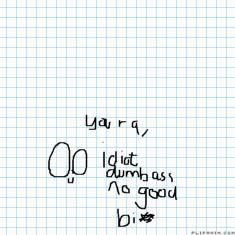 your a,
Idiot
dumbass
no good
bi
FLIPANIM.COM